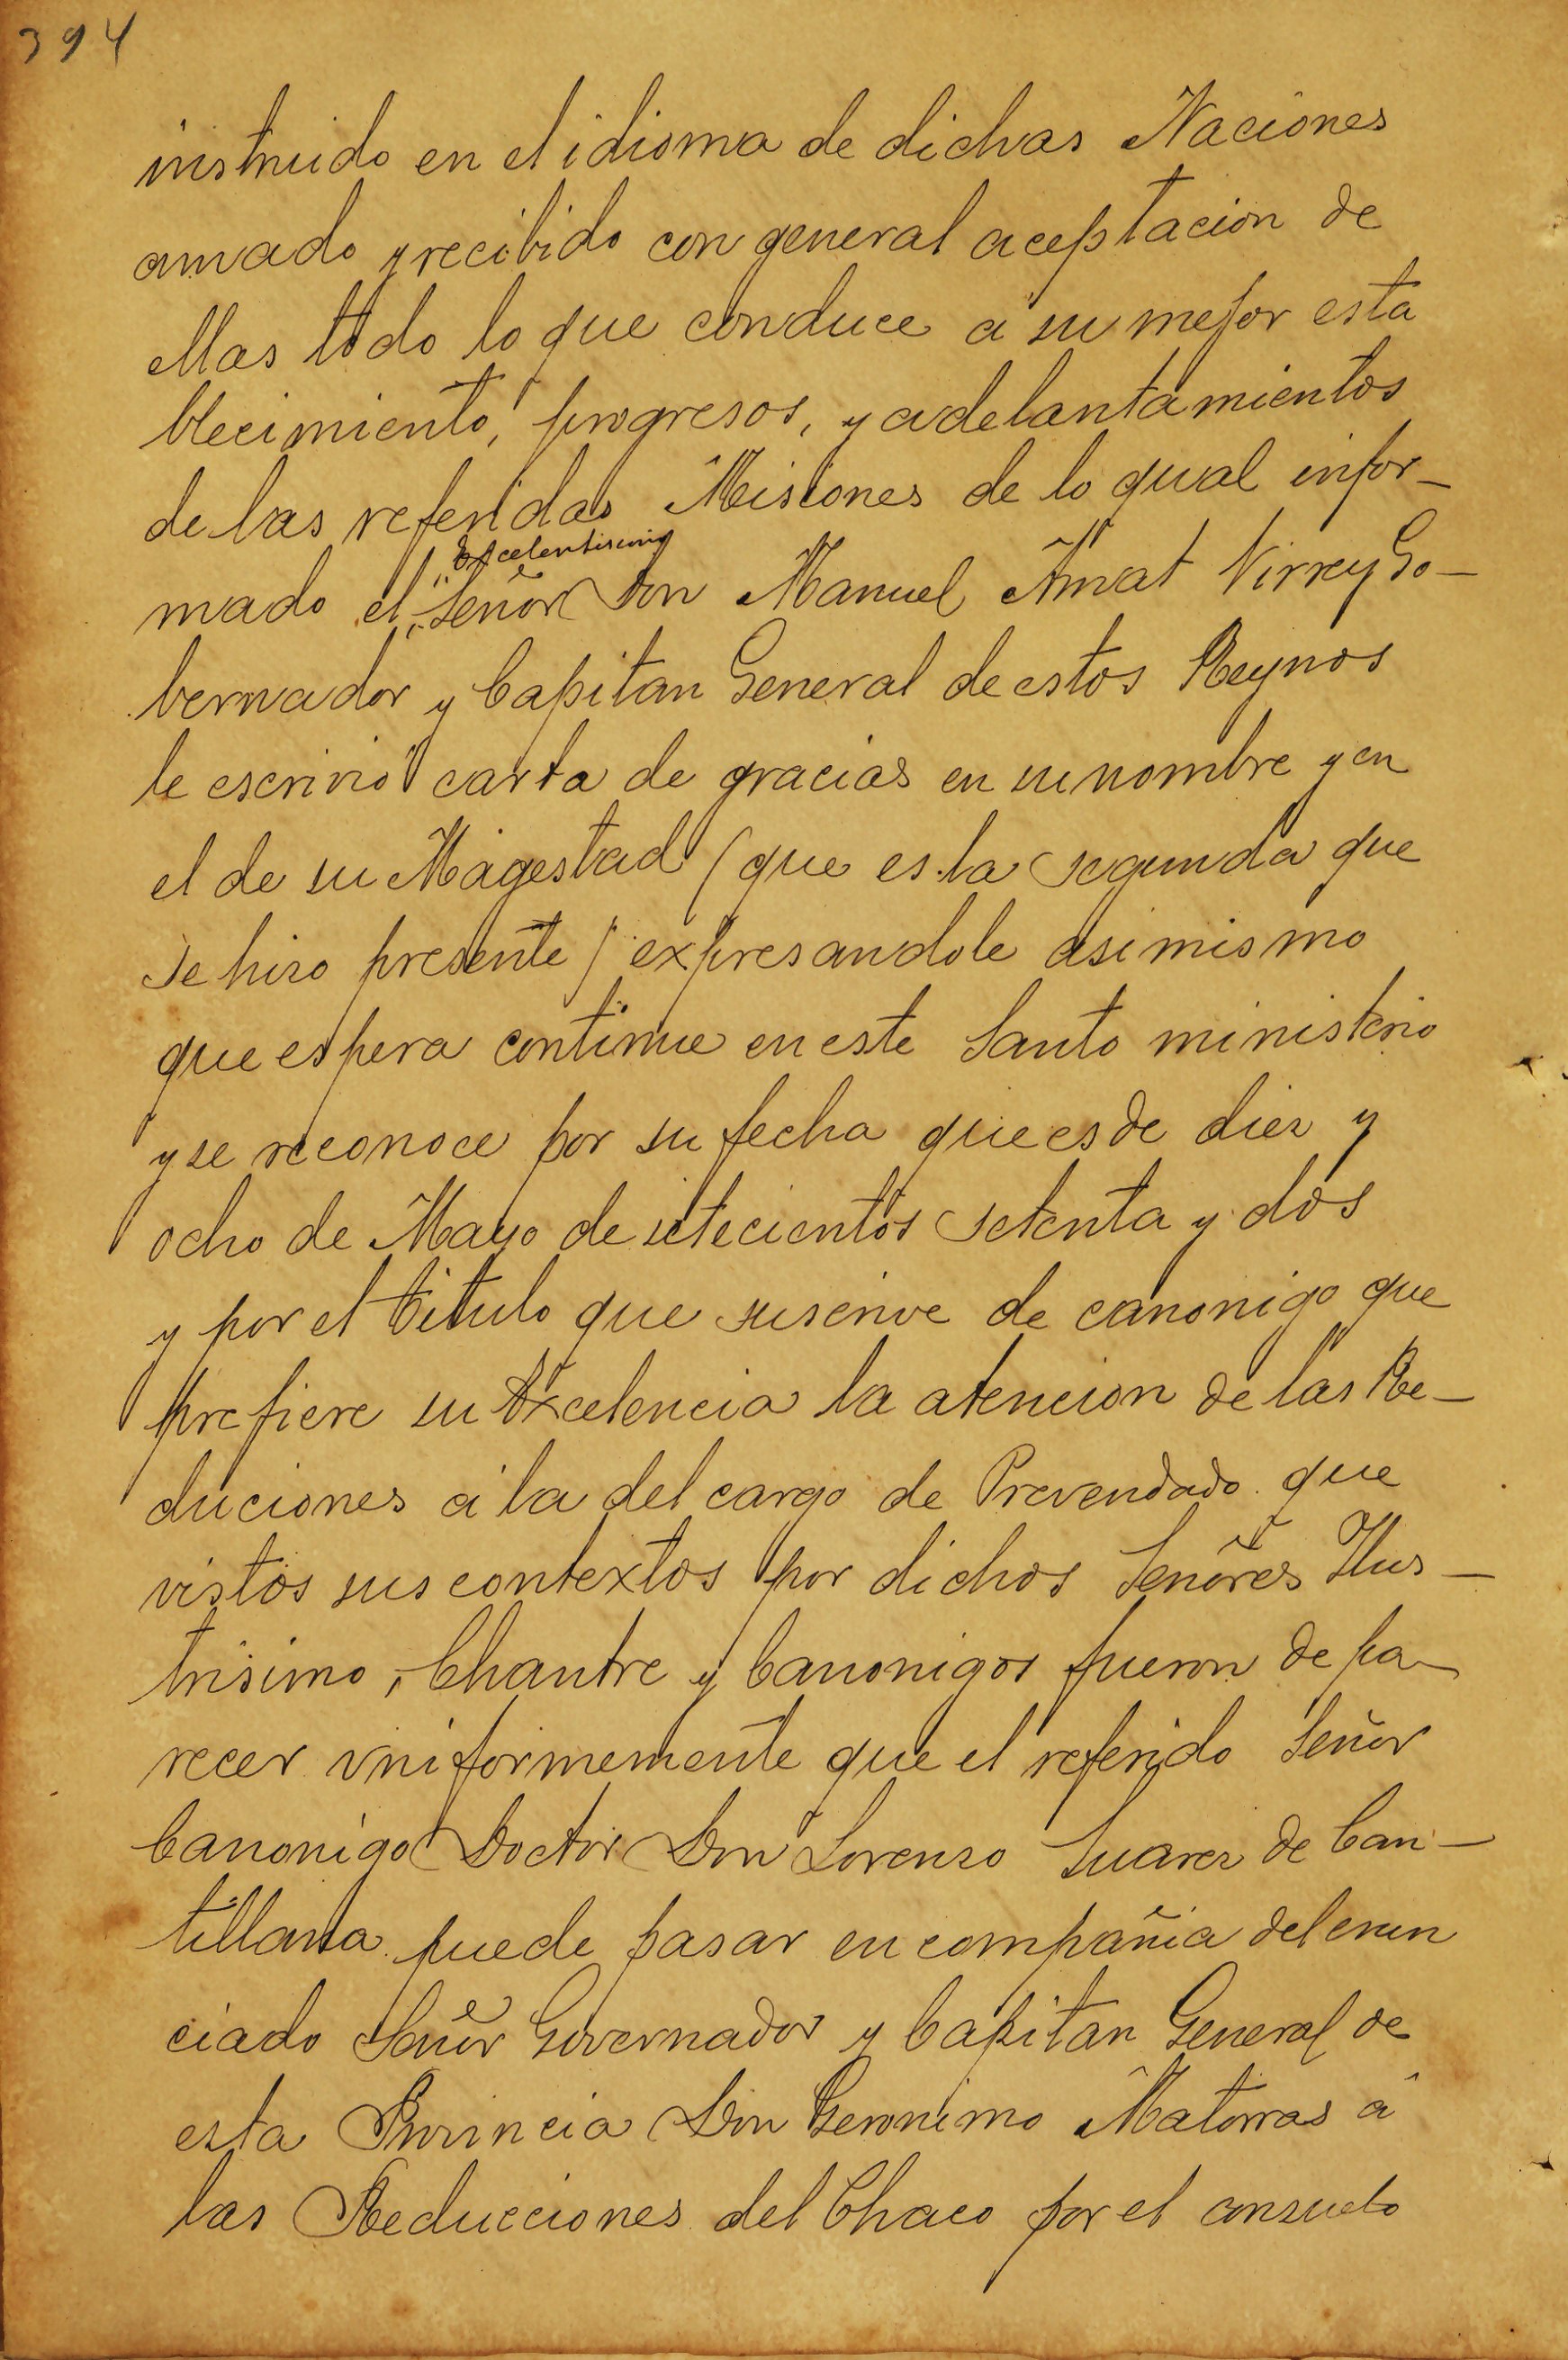 394
instruido en el idioma de dichas Naciones
amado y recibido con general aceptacion de
ellas todo lo que conduce á su mejor esta
blecimiento, progresos, y adelantamientos
de las referidas Misiones de lo qual infor-
Excelentisimo
mado el Señor Don Manuel Amat Virrey Go-
bernador y Capitan General de estos Reynos
le escrivió carta de gracias en su nombre y en
el de su Magestad (que es la segunda que
se hiso presente) expresandole asimismo
que espera continue en este Santo ministerio
y se reconoce por su fecha que es de diez y
ocho de Mayo de setecientos setenta y dos
y por el titulo que suscrive de canonigo que
prefiere su Excelencia la atencion de las Re-
duciones a la del cargo de Prevendado que
vistos sus contextos por dichos Señores Ilus-
trisimo, Chantre y Canonigos fueron de pa-
recer vniformemente que el referido Señor
Canonigo Doctor Don Lorenzo Suarez de Can-
tillana puede pasar en compañia del enun
ciado Señor Governador y Capitan General de
esta Provincia Don Geronimo Matorras á
las Reducciones del Chaco por el consuelo